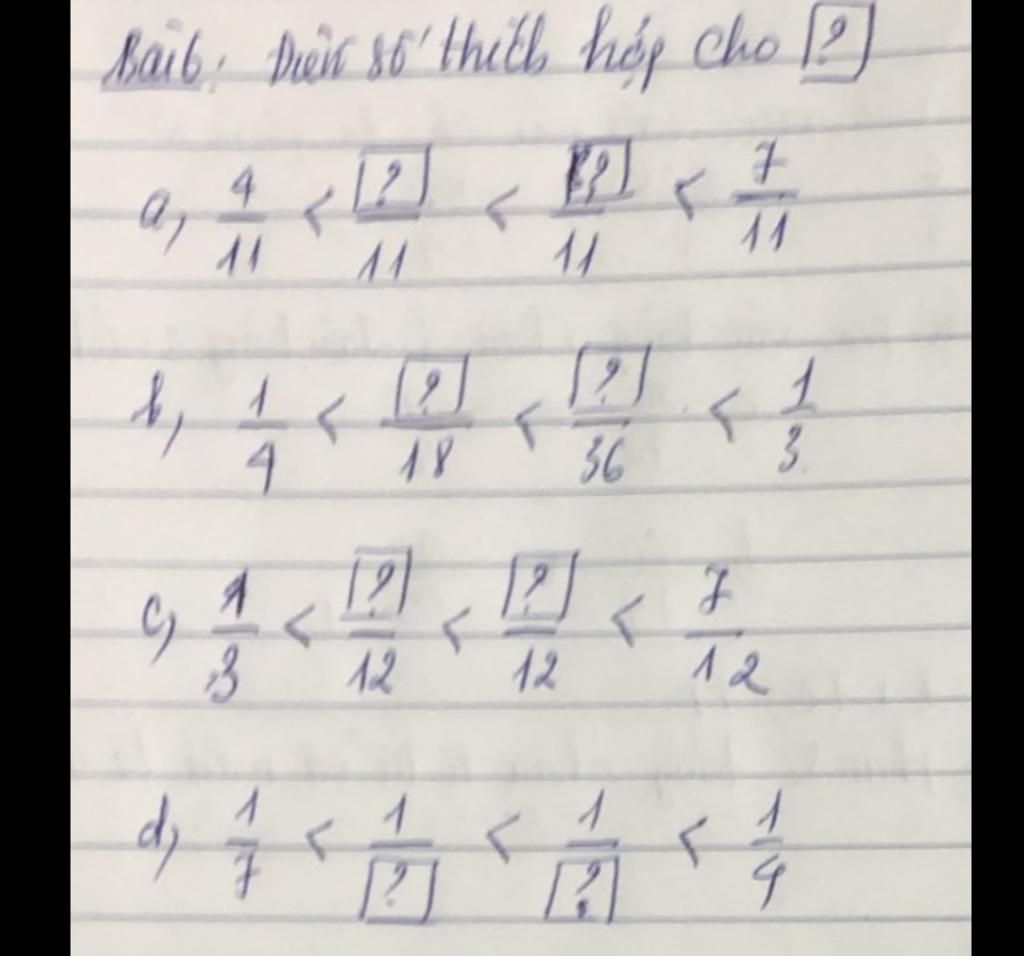 Bài 6: Điền số thích hợp cho [?]
a, 4/11 < [?]/11 < [?]/11 < 7/11
b, 1/4 < [?]/18 < [?]/36 < 1/3
c, 1/3 < [?]/12 < [?]/12 < 7/12
d, 1/7 < 1/[?] < 1/[?] < 1/4